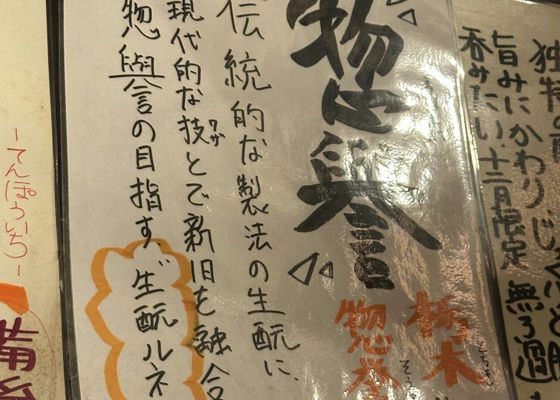 独特の
旨みにかわりじ
呑みたい十二月限定
無ろ過
惣譽
栃木
惣誉
伝統的な製法の生酛に、
現代的な技とで新旧を融合
ワザ
惣譽の目指す"生酛ルネ
ーてんぽういちー
備